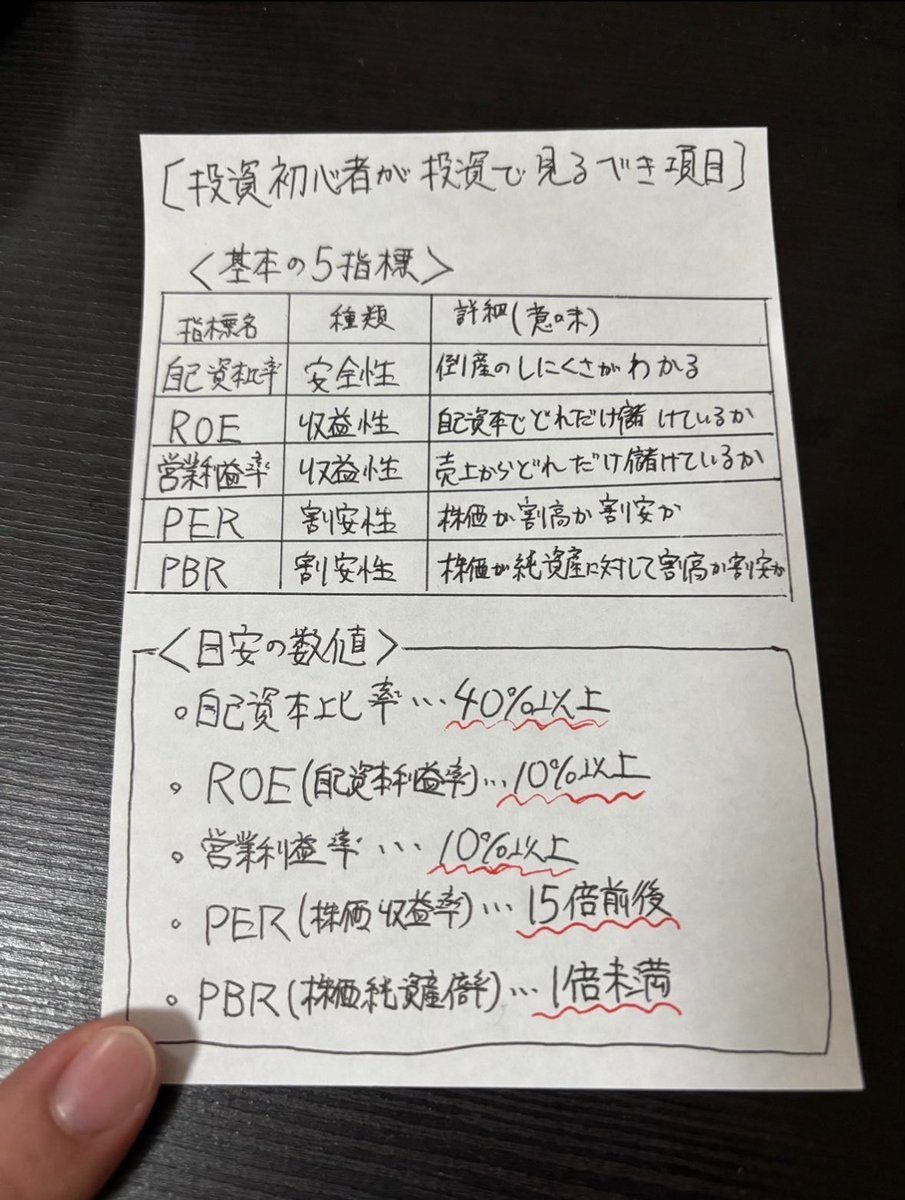 [投資初心者が投資で見るべき項目]
<基本の5指標>
指標名 種類 詳細(意味)
自己資本比率 安全性 倒産のしにくさがわかる
ROE 収益性 自己資本でどれだけ儲けているか
営業利益率 収益性 売上からどれだけ儲けているか
PER 割安性 株価が割高か割安か
PBR 割安性 株価が純資産に対して割高か割安か
<目安の数値>
・自己資本比率…40%以上
・ROE(自己資本利益率)…10%以上
・営業利益率…10%以上
・PER(株価収益率)…15倍前後
・PBR(株価純資産倍率)…1倍未満